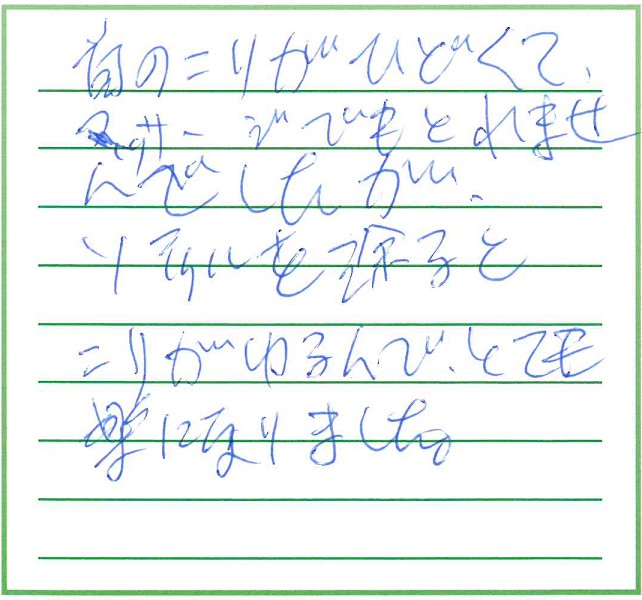 首のコリがひどくて、
マッサージでもとれませ
んでしたが、
を ると
コリがゆるんで、とても
楽になりました。